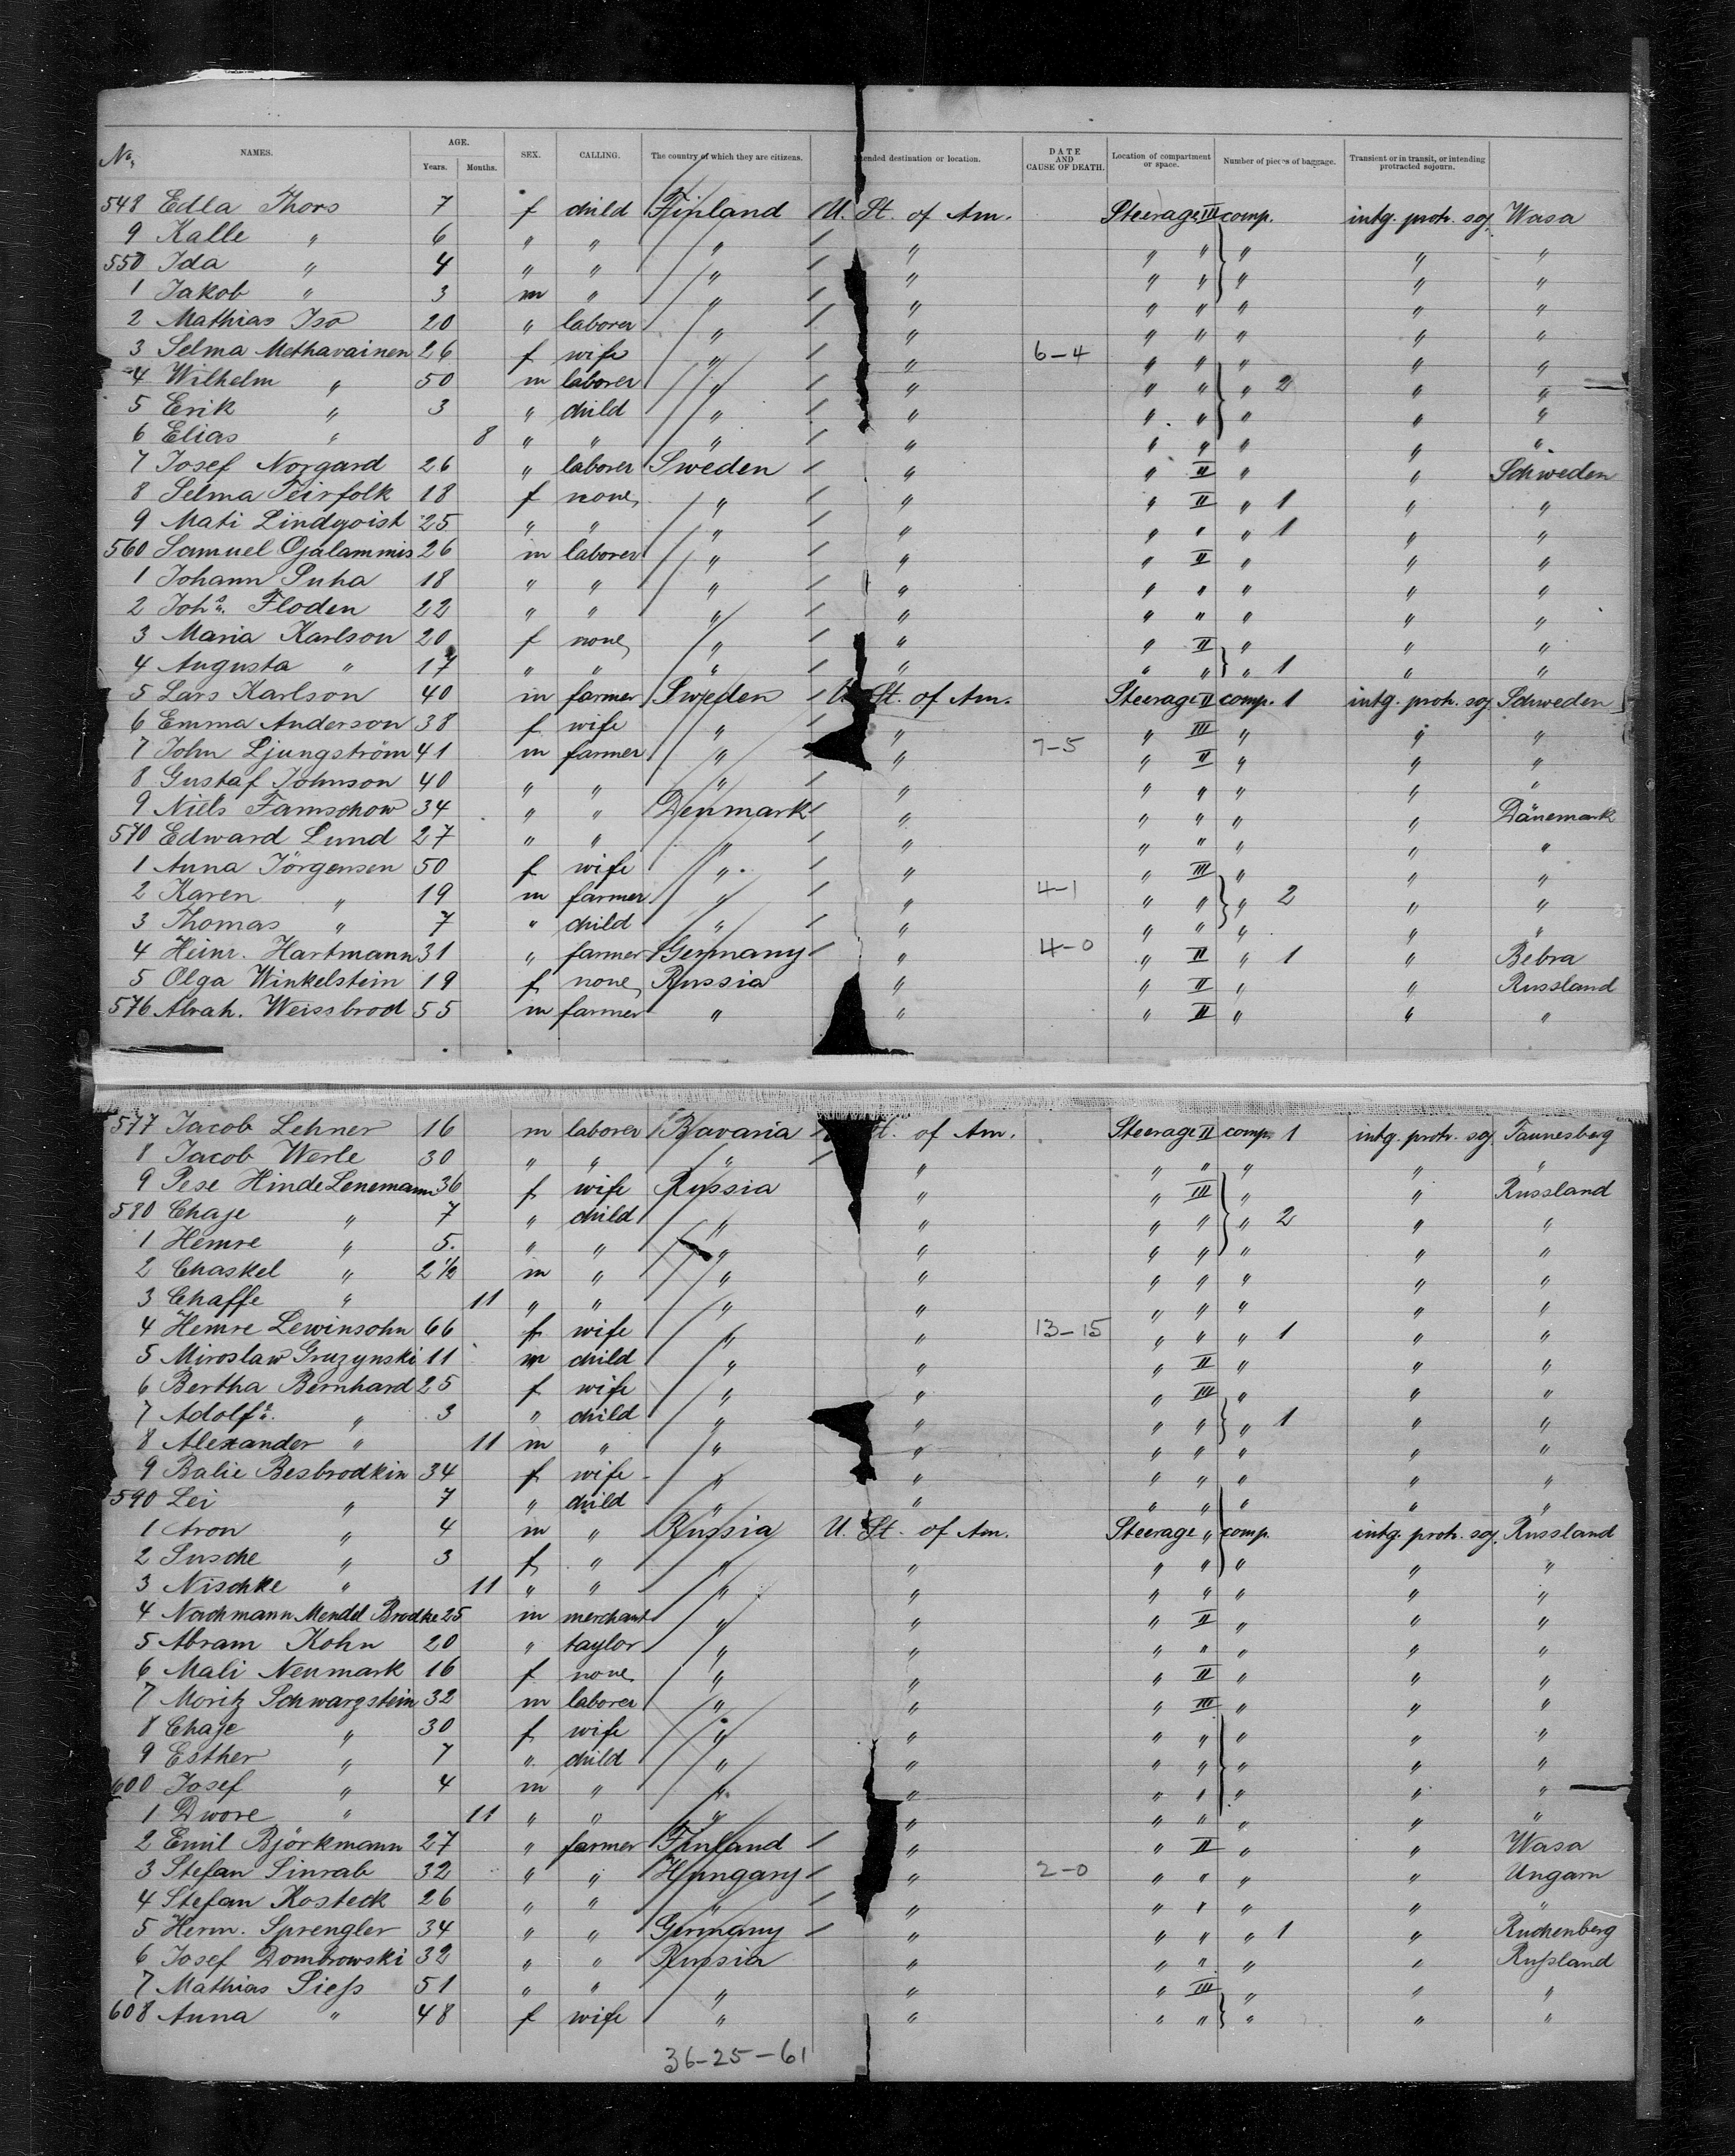 No. NAMES. AGE. Years. Months. SEX. CALLING. The country of which they are citizens. Intended destination or location. DATE AND CAUSE OF DEATH. Location of compartment or space. Number of pieces of baggage. Transient or in transit, or intending protracted sojourn.
548 Edla Thors 7 f child Finland U. St. of Am. Steerage III comp. intg. protr. soj. Wasa
9 Kalle " 6 " " " " " " " " "
550 Ida " 4 " " " " " " " " "
1 Jakob " 3 m " " " " " " " "
2 Mathias Iso 20 " laborer " " " " " " "
3 Selma Methavainen 26 f wife " " 6-4 " " " " "
4 Wilhelm " 50 m laborer " " " " " 2 " "
5 Erik " 3 " child " " " " " " "
6 Elias " 8 " " " " " " " " "
7 Josef Norgard 26 " laborer Sweden " " II " " Schweden
8 Selma Teirfolk 18 f none " " " II " 1 " "
9 Mati Lindqvist 25 " " " " " " " 1 " "
560 Samuel Ojalammis 26 m laborer " " " II " " "
1 Johann Suha 18 " " " " " " " " "
2 Johs. Floden 22 " " " " " " " " "
3 Maria Karlson 20 f none " " " II " " "
4 Augusta " 17 " " " " " " " 1 " "
5 Lars Karlson 40 m farmer Sweden U. St. of Am. Steerage II comp. 1 intg. protr. soj. Schweden
6 Emma Anderson 38 f wife " " " III " " "
7 John Ljungström 41 m farmer " " 7-5 " II " " "
8 Gustaf Johnson 40 " " " " " " " " "
9 Niels Famschow 34 " " Denmark " " " " " Dänemark
570 Edward Lund 27 " " " " " " " " "
1 Anna Jörgensen 50 f wife " " " III " " "
2 Karen " 19 m farmer " " 4-1 " " " 2 " "
3 Thomas " 7 " child " " " " " " "
4 Heinr. Hartmann 31 " farmer Germany " 4-0 " II " 1 " Bebra
5 Olga Winkelstein 19 f none Russia " " II " " Russland
576 Abrah. Weissbrod 55 m farmer " " " II " " "
577 Jacob Lehner 16 m laborer Bavaria St. of Am. Steerage II comp. 1 intg. protr. soj. Tannesberg
8 Jacob Werle 30 " " " " " " " " "
9 Pese Hinde Lenemann 36 f wife Russia " " III " " Russland
580 Chaje " 7 " child " " " " " 2 " "
1 Hemre " 5. " " " " " " " " "
2 Chaskel " 2 1/2 m " " " " " " " "
3 Chaffe " 11 " " " " " " " " "
4 Hemre Lewinsohn 66 f wife " " 13-15 " " " 1 " "
5 Miroslaw Gruzynski 11 m child " " " II " " "
6 Bertha Bernhard 25 f wife " " " III " " "
7 Adolfs. " 3 " child " " " " " 1 " "
8 Alexander " 11 m " " " " " " " "
9 Balie Besbrodkin 34 f wife " " " " " " "
590 Lei " 7 " child " " " " " " "
1 Aron " 4 m " Russia U. St. of Am. Steerage " comp. intg. protr. soj. Russland
2 Susche " 3 f " " " " " " " "
3 Nischke " 11 " " " " " " " " "
4 Nachmann Mendel Brodke 25 m merchant " " " II " " "
5 Abram Kohn 20 " taylor " " " " " " "
6 Mali Neumark 16 f none " " " II " " "
7 Moritz Schwarzstein 32 m laborer " " " III " " "
8 Chaje " 30 f wife " " " " " " "
9 Esther " 7 " child " " " " " " "
600 Josef " 4 m " " " " " " " "
1 Dwore " 11 " " " " " " " " "
2 Emil Björkmann 27 " farmer Finland " " II " " Wasa
3 Stefan Sinrab 32 " " Hungary " 2-0 " " " " Ungarn
4 Stefan Kosteck 26 " " " " " " " " "
5 Herm. Sprengler 34 " " Germany " " " " 1 " Ruchenberg
6 Josef Dombrowski 32 " " Russia " " " " " Rußland
7 Mathias Sieß 51 " " " " " III " " "
608 Anna " 48 f wife " " " " " " "
36-25-61